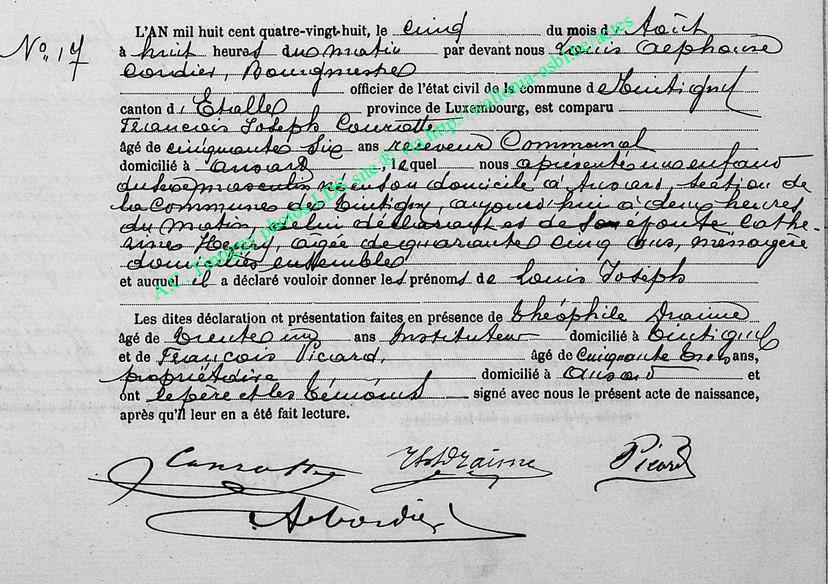 N° 17
L'AN mil huit cent quatre-vingt-huit, le cinq du mois d'Août
à huit heures du matin par devant nous Louis Alphonse
Cordier, Bourgmestre
officier de l'état civil de la commune de Tintigny
canton d'Etalle province de Luxembourg, est comparu
François Joseph Courotte
âgé de cinquante six ans receveur Communal
domicilié à Ansart, lequel nous a présenté un enfant
du sexe masculin né en son domicile à Ansart, section de
la Commune de Tintigny, aujourd'hui à deux heures
du matin, de lui déclarant et de son épouse Cathe-
rine Henry, âgée de quarante cinq ans, ménagère
domiciliés ensemble
et auquel il a déclaré vouloir donner les prénoms de Louis Joseph
Les dites déclaration et présentation faites en présence de Théophile Draime
âgé de trente un ans Instituteur domicilié à Tintigny
et de François Picard, âgé de Cinquante trois ans,
propriétaire domicilié à Ansart et
ont le père et les témoins signé avec nous le présent acte de naissance,
après qu'il leur en a été fait lecture.
Picard
A. Cordier